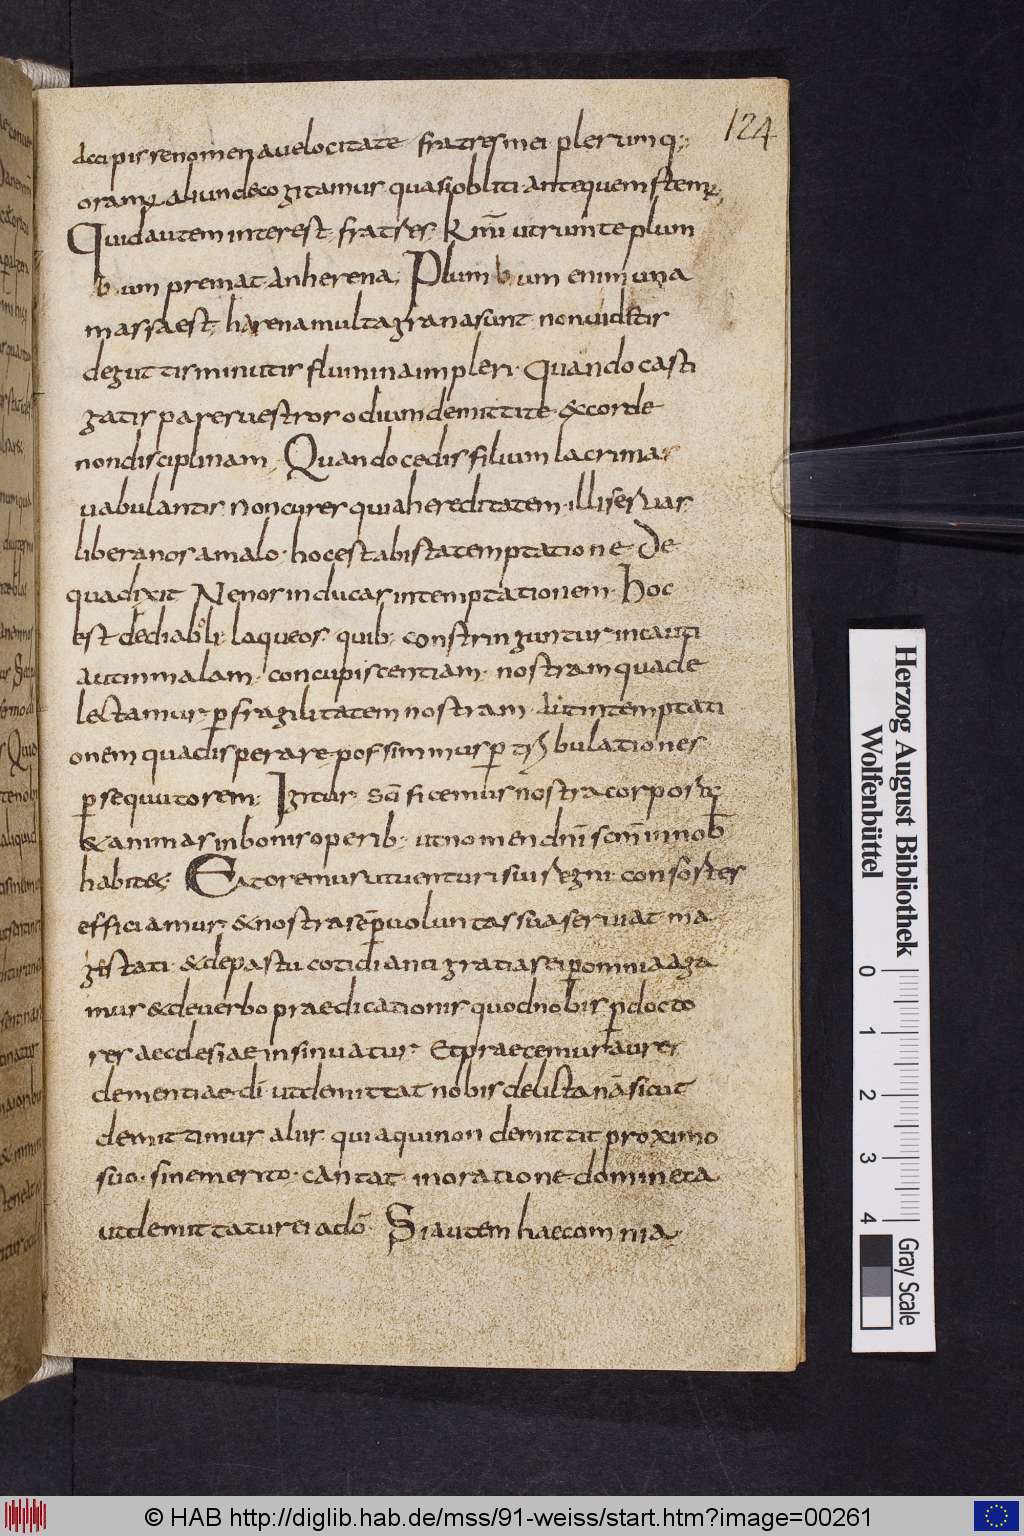 124
accipis renomen avelocitate fratres mei plerumq;
oram; aliunde cogitamur quasi obliti ante quem stem;
Quid autem interest fratres Kmi utrum te plum
b um premat an herena, Plum b um enim una
massa est harena multa grana sunt non videtis
de guttis minutis flumina impleri. Quando casti
gatis pareruestros odium demittite & corde
non disciplinam, Quando cedis filium lacrimas
vabulantis non cures quia hereditatem illi servas
libera nos a malo. hoc est ab ista temptatione De
qua dixit Ne nos inducas in temptationem. Hoc
est de diaboli laqueos quib; constringuntur incauti
aut in malam concupiscentiam nostram qua de
lectamur p fragilitatem nostram Aut in temptati
onem qua disperare possimmus p tribulationes
psequutorem; Igitur scificemur nostra corpora
& animas in bonis operib; ut nomen dni scm in nob
habit&; Et oremus ut venturi sui regni consortes
efficiamur & nostra sep voluntas sua serviat ma
gestati & de pastu cotidiano gratias ei p omnia aga
mus & de verbo praedicationis quod nobis p docto
res aecclesiae insinuatur Et praecemur aures
clementiae di ut demittat nobis delicta nra sicut
demittimus aliis quia qui non demittit proximo
suo sine merito cantat in oratione dominica
ut demittatur ei a do. Si autem haec omnia
Herzog August Bibliothek
Wolfenbüttel
0 1 2 3 4
Gray Scale
© HAB http://diglib.hab.de/mss/91-weiss/start.htm?image=00261